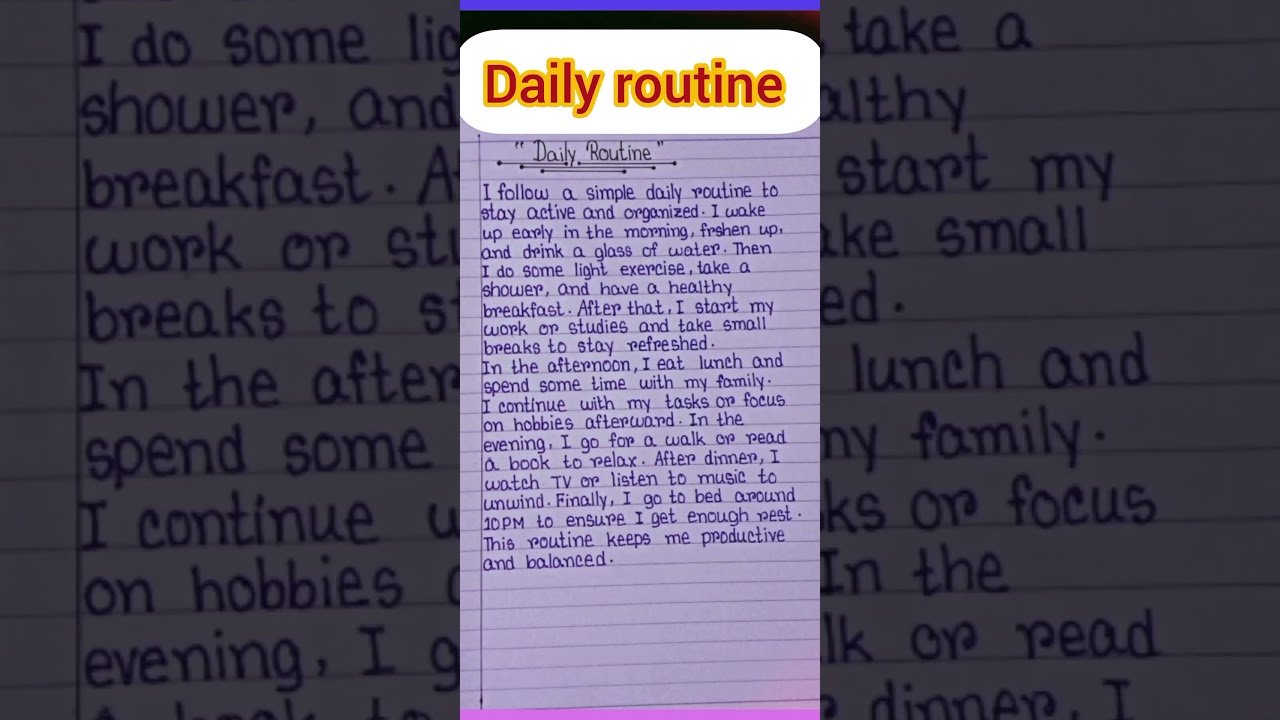 Daily routine
" Daily Routine "
I follow a simple daily routine to
stay active and organized. I wake
up early in the morning, frshen up,
and drink a glass of water. Then
I do some light exercise, take a
shower, and have a healthy
breakfast. After that, I start my
work or studies and take small
breaks to stay refreshed.
In the afternoon, I eat lunch and
spend some time with my family.
I continue with my tasks or focus
on hobbies afterward. In the
evening, I go for a walk or read
a book to relax. After dinner, I
watch TV or listen to music to
unwind. Finally, I go to bed around
10PM to ensure I get enough rest.
This routine keeps me productive
and balanced.